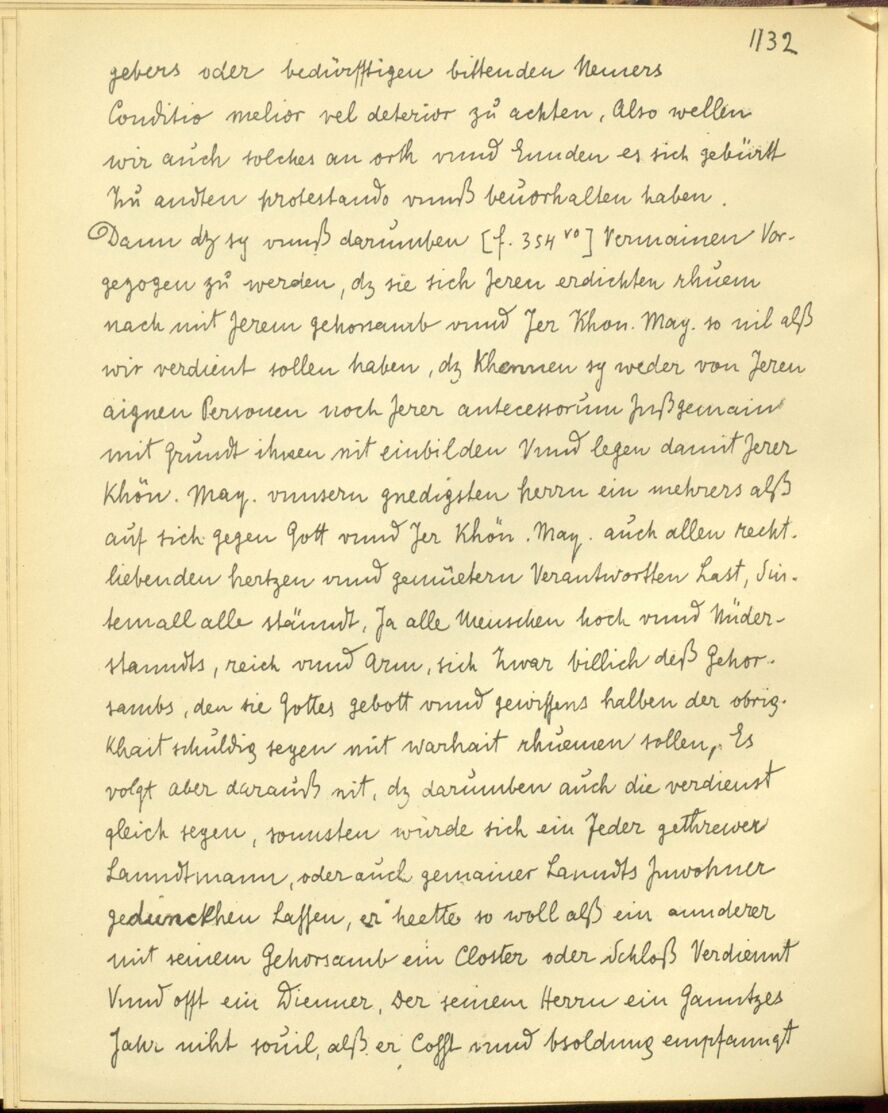 1132
gebers oder bedürfftigen bittenden Nemers
Conditio melior vel deterior zu achten, Also wellen
wir auch solches an orth vnnd Ennden es sich gebürtt
Zu andten protestando vnnß beuorhalten haben.
Dann dz sy vnnß darumben [f. 354 vo] Vermainen Vor-
gezogen zu werden, dz sie sich Jeren erdichten rhuem
nach mit Jerem gehorsamb vnnd Jer Khon. May. so uil alß
wir verdient sollen haben, dz Khennen sy weder von Jeren
aignen Personen noch Jerer antecessorum Inßgemain
mit Grundt ihnen nit einbilden Vnnd legen damit Jerer
Khön. May. vnnsern gnedigsten herrn ein mehrers alß
auf sich gegen Gott vnnd Jer Khön. May. auch allen recht-
liebenden hertzen vnnd gemüetern Verantwortten Last, Sin-
temall alle stänndt, Ja alle Menschen hoch vnnd Nüder-
stanndts, reich vnnd Arm, sich Zwar billich deß Gehor-
sambs, den sie Gottes gebott vnnd gewissens halben der obrig-
khait schuldig seyen mit warhait rhuemen sollen, Es
volgt aber darauß nit, dz darumben auch die verdienst
gleich seyen, sonnsten wurde sich ein Jeder gethrewer
Lanndtmann, oder auch gemainer Lanndts Inwohner
gedunckhen Lassen, er heette so woll alß ein annderer
mit seinem Gehorsamb ein Closter oder Schloß Verdiennt
Vnnd offt ein Dienner, Der seinem Herrn ein Ganntzes
Jahr niht souil, alß er Cosst vnnd bsoldung empfanngt